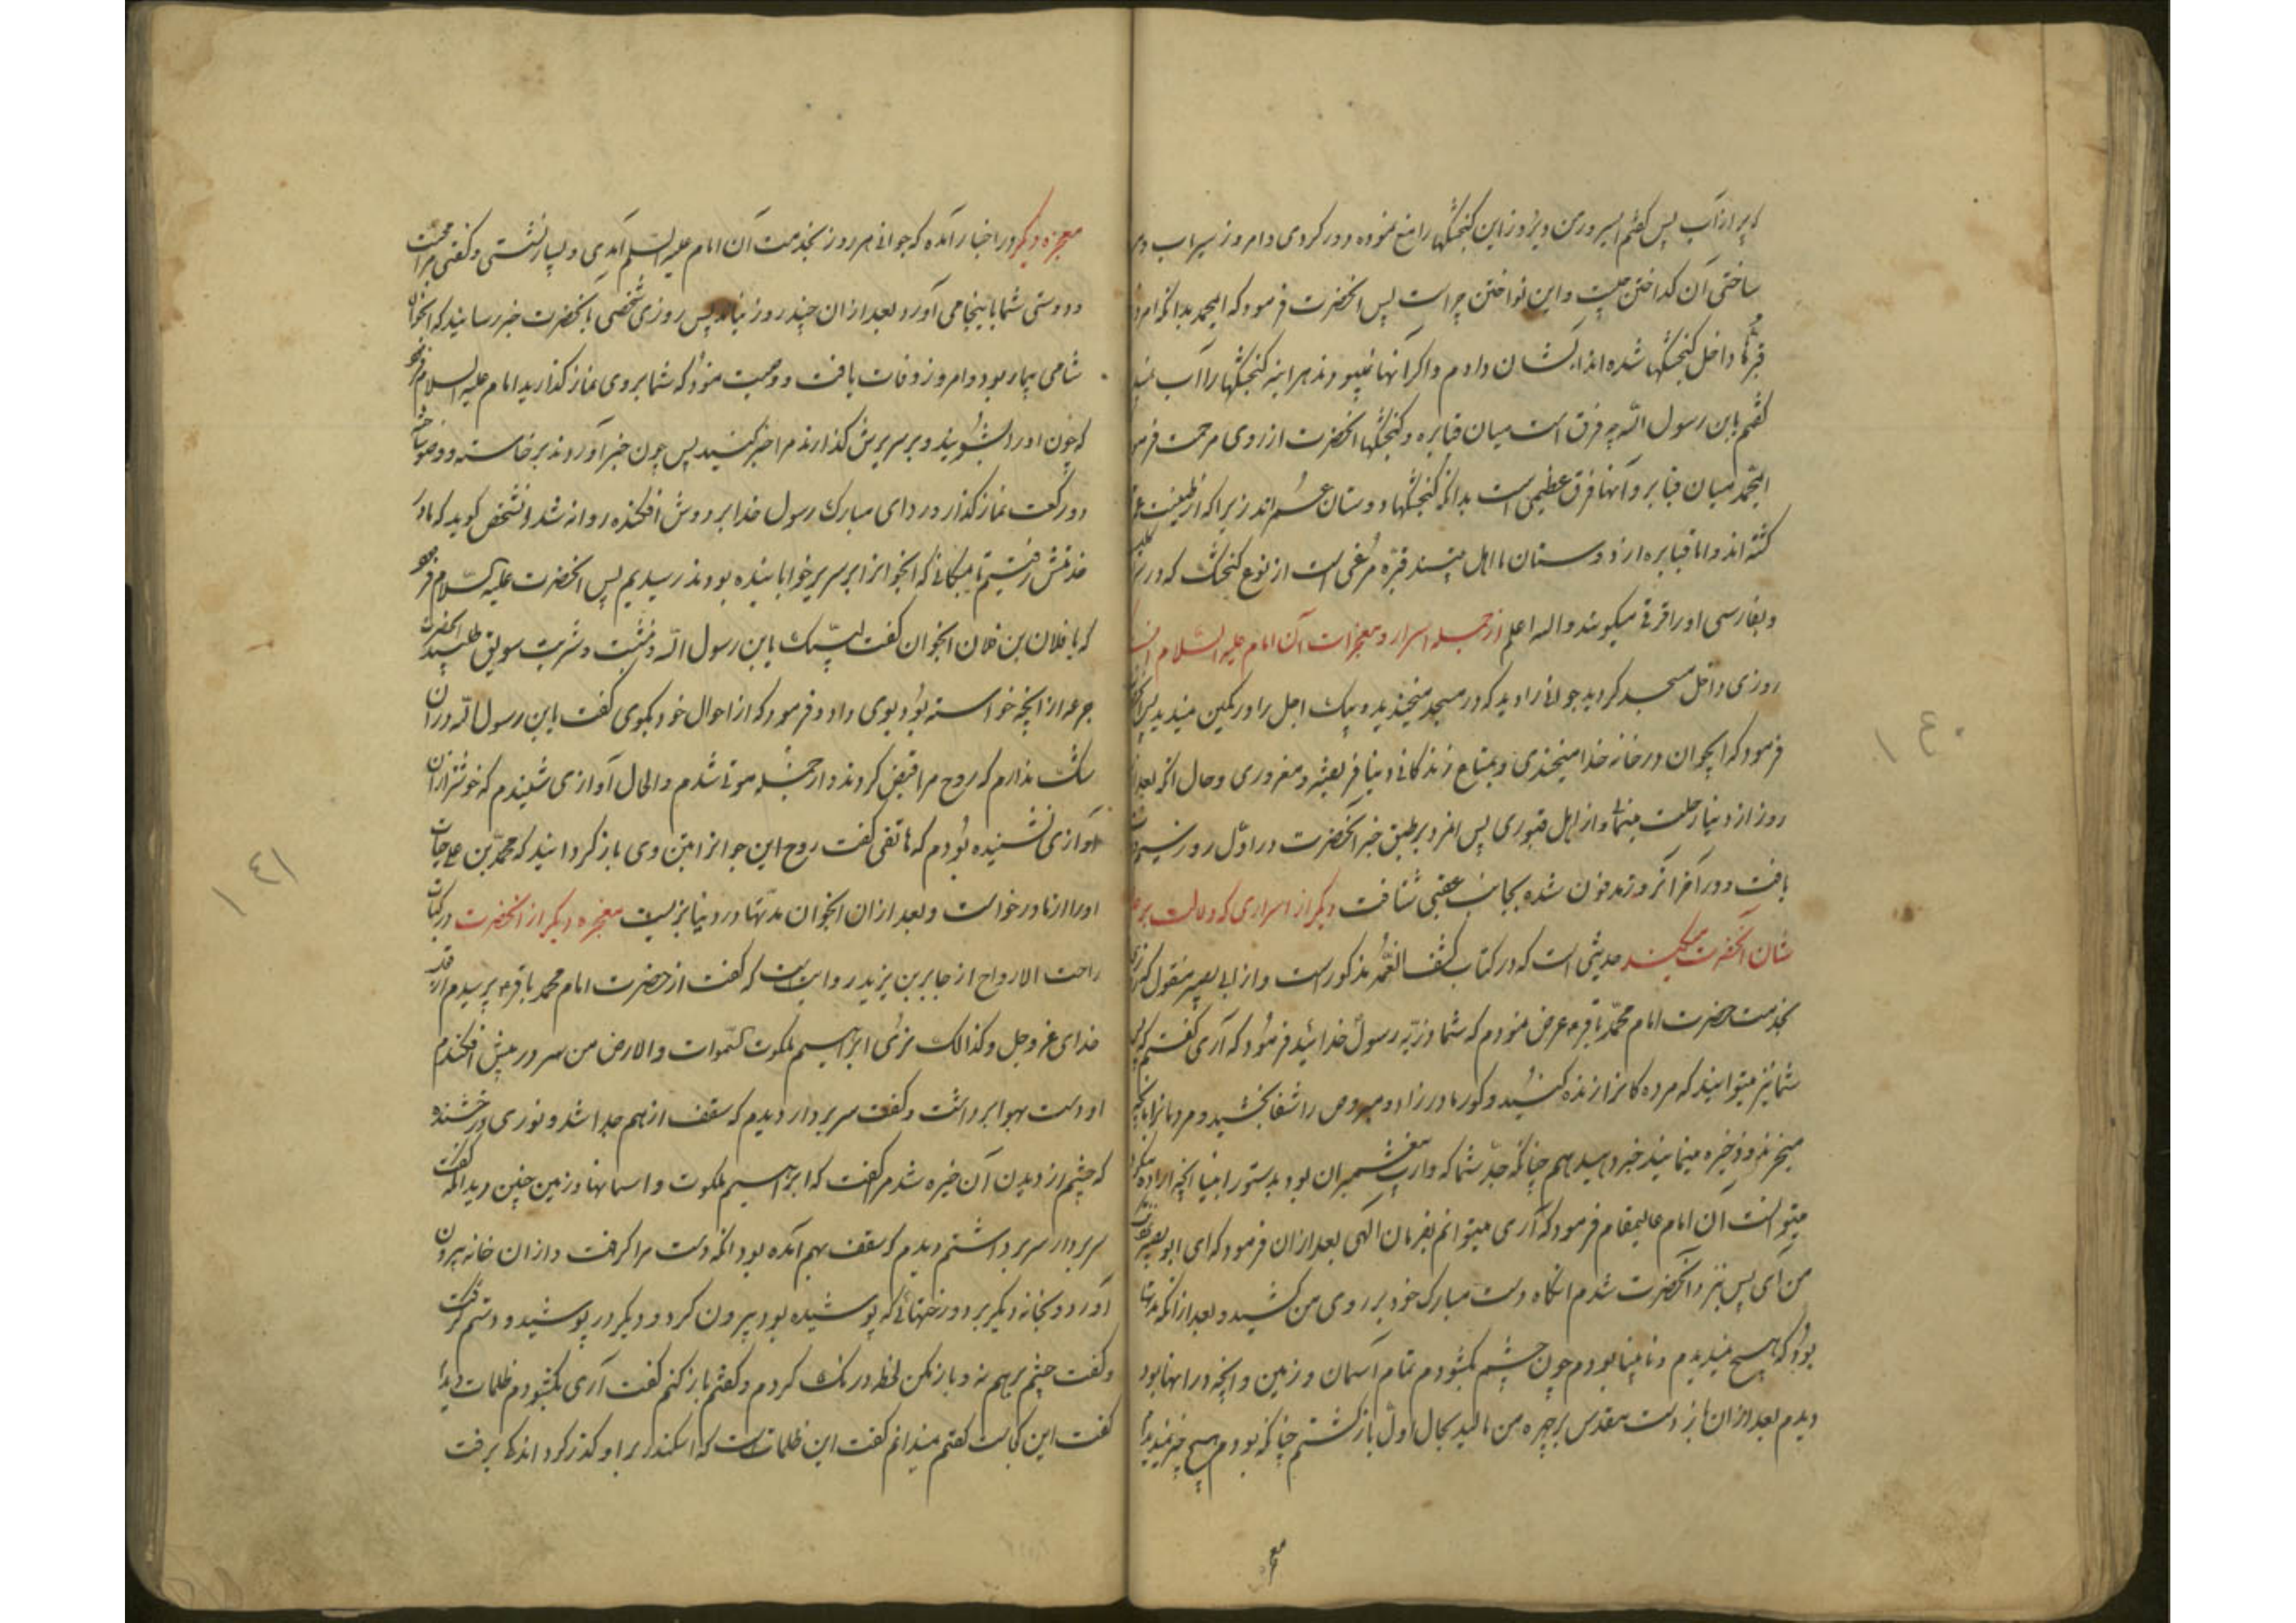 که پر از آب پس گفتم ای سرور من دیروز این کنجشکها را منع نموده دور کردی و امروز سیراب
ساختی آن کداختن چیست و این نواختن چراست پس آنحضرت فرمود که ای محمد بدانکه امروز
داخل کنجشکها شده اند آب بایشان دادم و اگر آنها نمیبودند هر آینه کنجشکها را آب
گفتم یابن رسول الله چه فرق است میان قنابره و کنجشکها آنحضرت از روی مرحمت
ای محمد میان قنابر و آنها فرق عظیمی است بدانکه کنجشکها دوستان عمراند زیرا که از طینت
کشته اند و اما قنابره از دوستان ما اهل بیتند قبره مرغی است از نوع کنجشک که در سر
و بفارسی او را میکویند والله اعلم از جمله اسرار و معجزات آن امام علیه السلام
روزی داخل مسجد کردید جوانی را دید که در مسجد میخندید و پیک اجل را در کمین میدید پس
فرمود که ای جوان در خانه خدا میخندی و بمتاع زندکانی دنیا فریفته و مغروری و حال آنکه بعد از
روز از دنیا رحلت مینمائی و از اهل قبوری پس آنمرد بر طبق خبر آنحضرت در اول روز سیم
یافت و در آخر آنروز مدفون شده بجانب عقبی شتافت دیکر از اسراری که دلالت بر
شان آنحضرت میکند حدیثی است که در کتاب کشف الغمه مذکور است و از ابی بصیر منقول
بخدمت حضرت امام محمد باقر ع عرض نمودم که شما ذریّه رسول خدائید فرمود که آری گفتم
شما نیز میتوانید که مرده کانرا زنده کنید و کور مادرزاد و مبروص را شفا بخشید و مردمانرا بآنچه
میخورند و ذخیره مینمایند خبر دهید همچنانکه جدّ شما که وارث پیغمبران بود بدستور انبیا آنچه اراده
میتوانست آن امام عالیمقام فرمود که آری میتوانم بفرمان الهی بعد از آن فرمود که ای ابو بصیر
من آی پس نزد آنحضرت شدم آنکاه دست مبارک خود بر روی من کشید و بعد از آنکه مدتها
بود که هیچ نمیدیدم و نابینا بودم چون چشم بکشودم تمام آسمان و زمین و آنچه در آنها بود
دیدم بعد از آن باز دست مقدس بر چهره من مالید بحال اول بازکشتم چنانکه بودم هیچ چیز نمیدیدم
۱۴۰
معجزه
معجزه دیکر در اخبار آمده که جوانی هر روز بخدمت آن امام علیه السلام آمدی و بسیار نشستی و گفتی مرا محبت
و دوستی شما باینجا می آورد بعد از آن چند روز نیامد پس روزی شخصی بآنحضرت خبر رسانید که آنجوان
شامی بیمار بود و امروز وفات یافت و وصیت نمود که شما بر وی نماز کذارید امام علیه السلام فرمود
که چون او را بشوئید و بر سریرش کذارند مرا خبر کنید پس چون خبر آوردند برخاسته و وضو ساخته
دو رکعت نماز کذارد و ردای مبارک رسول خدا بر دوش افکنده روانه شد آنشخص کوید که ما در
خدمتش رفتیم تا بمکانی که آنجوانرا بر سریر خوابانیده بودند رسیدیم پس آنحضرت علیه السلام فرمود
که یا فلان بن فلان آنجوان گفت لبیک یابن رسول الله و نشست و شربت سویق طلبید آنحضرت
جرعه از آنچه خواسته بود بوی داد و فرمود که از احوال خود بکوی گفت یابن رسول الله در آن
شک ندارم که روح مرا قبض کردند و از جمله موتی شدم و الحال آوازی شنیدم که خوشتر از آن
آوازی نشنیده بودم که هاتفی گفت روح این جوانرا بتن وی باز کردانید که محمد بن علی حیات
او را از ما درخواست و بعد از آن آنجوان مدتها در دنیا بزیست معجزه دیکر از آنحضرت در کتاب
راحت الارواح از جابر بن یزید روایت است که گفت از حضرت امام محمد باقر ع پرسیدم از قول
خدای عز و جل و کذالک نری ابراهیم ملکوت السموات والارض من سر در پیش افکندم
او دست بهوا برداشت و گفت سر بردار دیدم که سقف از هم جدا شد و نوری درخشنده
که چشم از دیدن آن خیره شد مرا گفت که ابراهیم ملکوت و اسمانها و زمین چنین دید آنکه گفت
سر بردار سر برداشتم دیدم که سقف بهم آمده بود آنکه دست مرا گرفت و از آن خانه بیرون
آورد و بخانه دیکر برد و رختهائی که پوشیده بود بیرون کرد و دیکر در پوشید و دستم گرفت
و گفت چشم برهم نه و باز مکن لحظه درنک کردم و گفتم باز کنم گفت آری بکشودم ظلمات دیدم
گفت این کجاست گفتم نمیدانم گفت این ظلماتست که اسکندر بر او کذر کرد اندکی برفت
۱۴۱